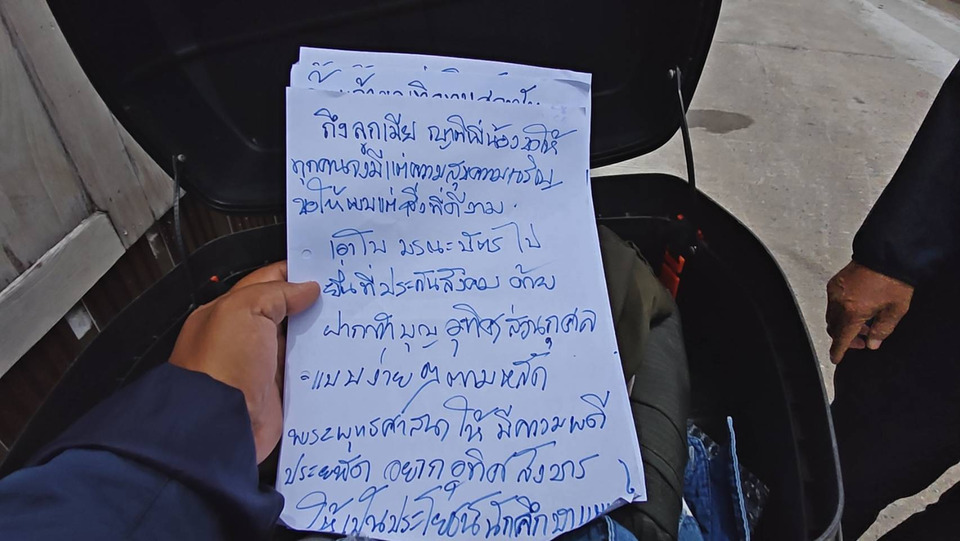 ถึงลูกเมีย ญาติพี่น้องขอให้
ทุกคนจงมีแต่ความสุขความเจริญ
ขอให้พบแต่สิ่งที่ดีงาม.
- เอาใบ มรณะบัตร ไป
ยื่นที่ประกันสังคม ด้วย
ฝากทำบุญ อุทิศส่วนกุศล
- แบบง่าย ๆ ตามหลัก
พระพุทธศาสนา ให้ มีความพอดี
ประหยัด อยากอุทิศสังขาร
ให้เป็นประโยชน์นักศึกษาแพ